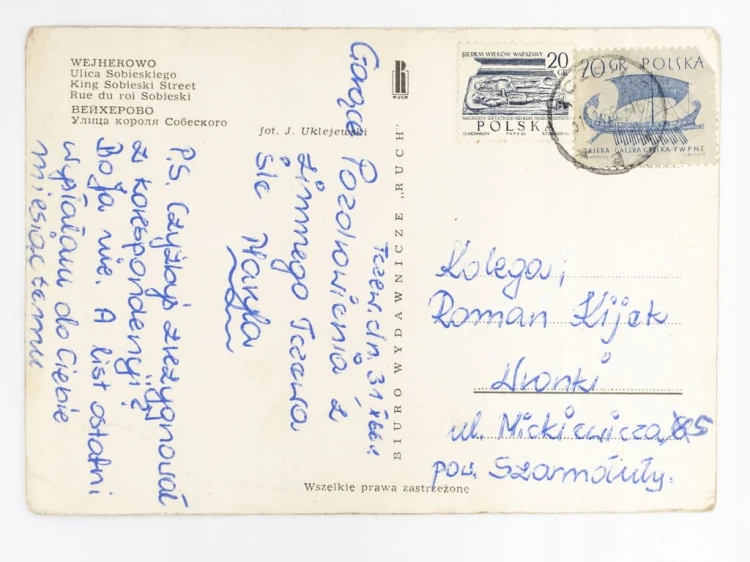 WEJHEROWO
Ulica Sobieskiego
King Sobieski Street
Rue du roi Sobieski
ВЕЙХЕРОВО
Улица короля Собеского
fot. J. Uklejewski
RUCH
BIURO WYDAWNICZE „RUCH"
Wszelkie prawa zastrzeżone
Tczew, dn. 31
Gorące Pozdrowienia z
zimnego Tczewa
śle Maryla
P.S. Czyżbyś zrezygnował
z korespondencji?
Boja nie. A list ostatni
wysłałam do Ciebie
miesiąc temu
SIEDEM WIEKÓW WARSZAWY
20 GR
POLSKA
20 GR POLSKA
TRIERA GALERA GRECKA V W P.N.E.
Kolega;
Roman Kijek
Wronki
ul. Mickiewicza 85
pow. Szamotuły.